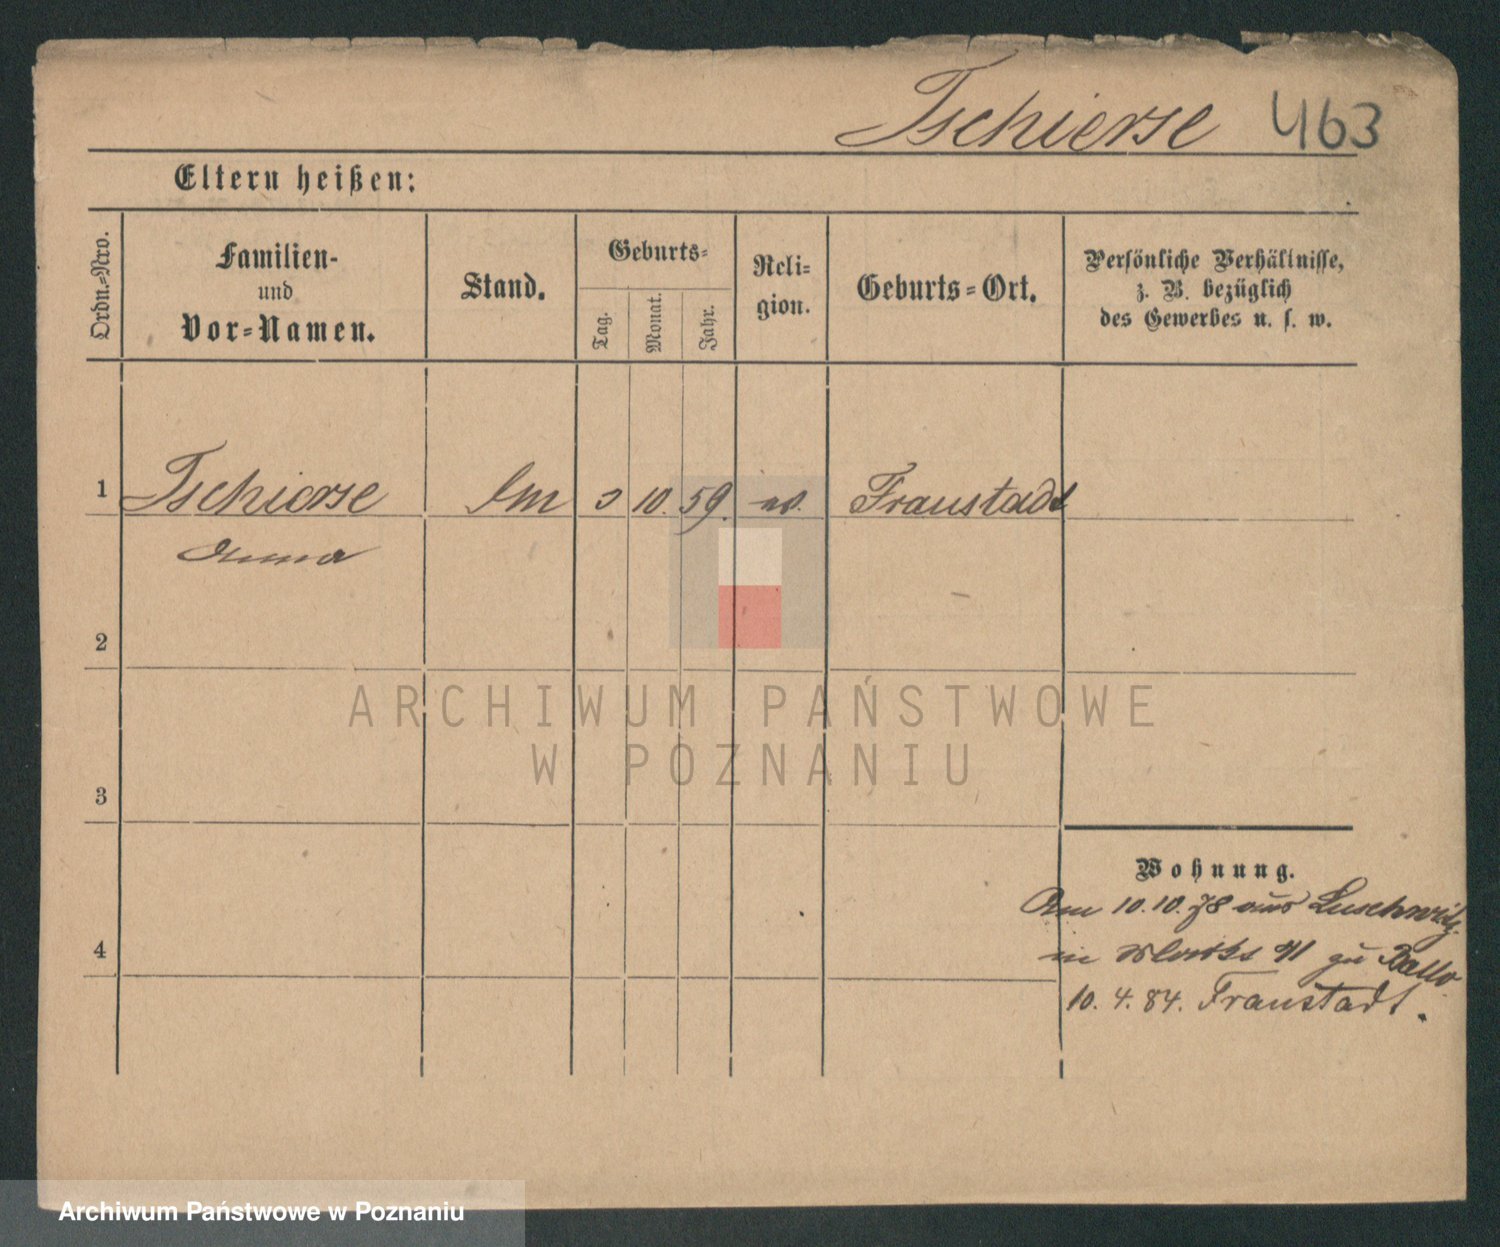 Tschierse 463
Eltern heißen:
Ordn.-Nro.
Familien-
und
Vor-Namen.
Stand.
Geburts-
Tag.
Monat.
Jahr.
Reli-
gion.
Geburts-Ort.
Persönliche Verhältnisse,
z. B. bezüglich
des Gewerbes u. s. w.
1 Tschierse 3 10. 59. Fraustadt
Anna
2
ARCHIWUM PAŃSTWOWE
W POZNANIU
3
Wohnung.
Am 10.10.78 aus Luschwitz
in 41 zu
4
10. 4. 84. Fraustadt.
Archiwum Państwowe w Poznaniu